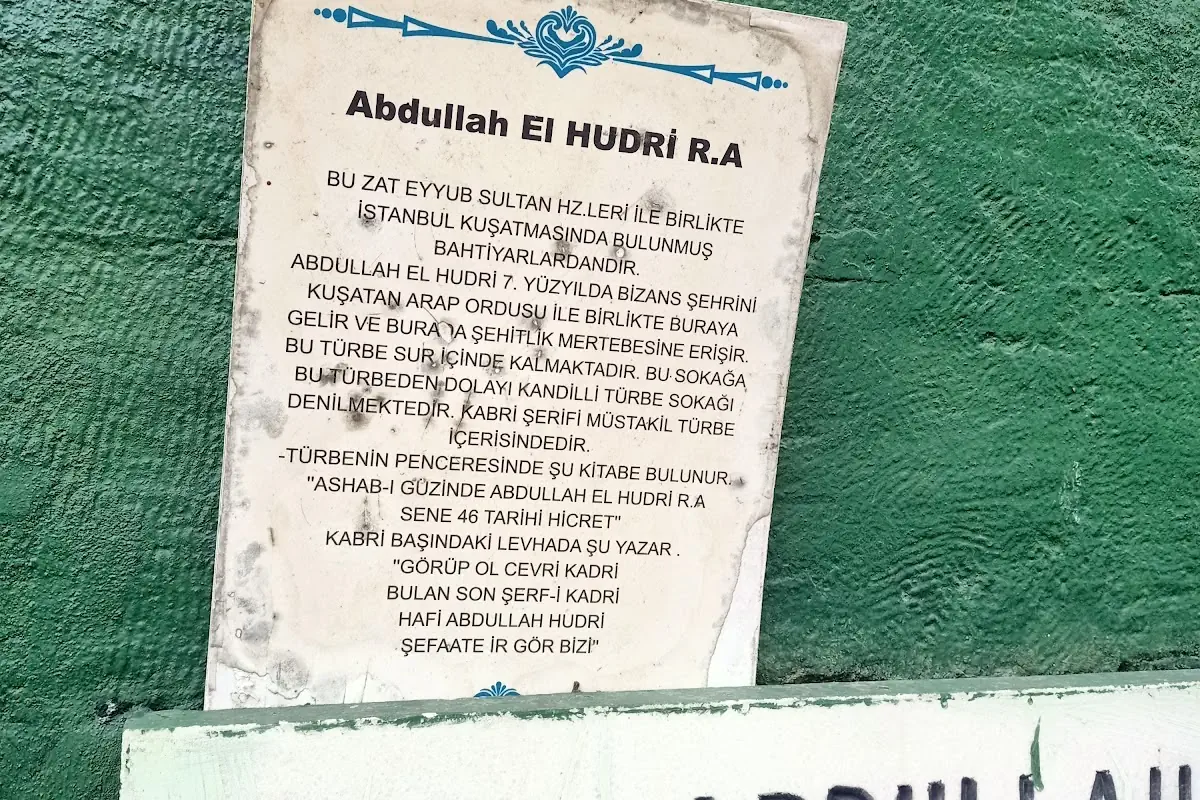 Abdullah El HUDRİ R.A
BU ZAT EYYUB SULTAN HZ.LERİ İLE BİRLİKTE
İSTANBUL KUŞATMASINDA BULUNMUŞ
BAHTİYARLARDANDIR.
ABDULLAH EL HUDRİ 7. YÜZYILDA BİZANS ŞEHRİNİ
KUŞATAN ARAP ORDUSU İLE BİRLİKTE BURAYA
GELİR VE BURADA ŞEHİTLİK MERTEBESİNE ERİŞİR.
BU TÜRBE SUR İÇİNDE KALMAKTADIR. BU SOKAĞA
BU TÜRBEDEN DOLAYI KANDİLLİ TÜRBE SOKAĞI
DENİLMEKTEDİR. KABRİ ŞERİFİ MÜSTAKİL TÜRBE
İÇERİSİNDEDİR.
-TÜRBENİN PENCERESİNDE ŞU KİTABE BULUNUR.
"ASHAB-I GÜZİNDE ABDULLAH EL HUDRİ R.A
SENE 46 TARİHİ HİCRET"
KABRİ BAŞINDAKİ LEVHADA ŞU YAZAR .
"GÖRÜP OL CEVRİ KADRİ
BULAN SON ŞERF-İ KADRİ
HAFİ ABDULLAH HUDRİ
ŞEFAATE İR GÖR BİZİ"